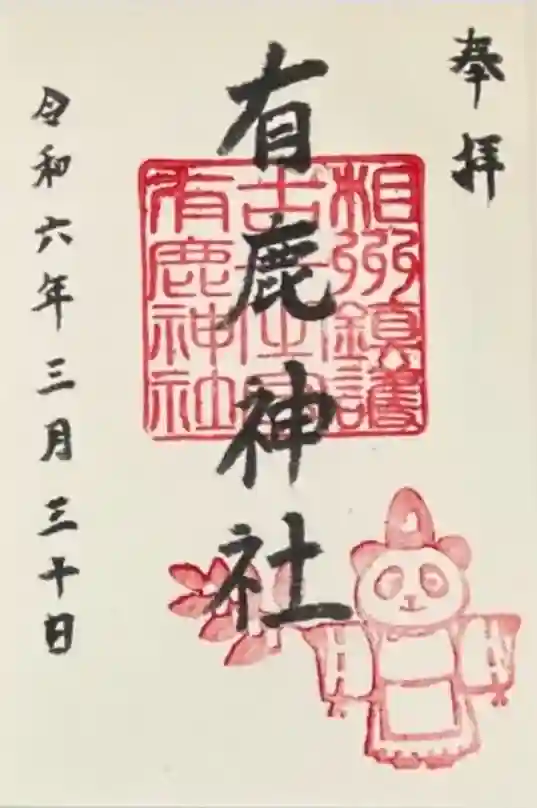 奉拝
相州鎮護
有鹿神社
有鹿神社
令和六年三月三十日